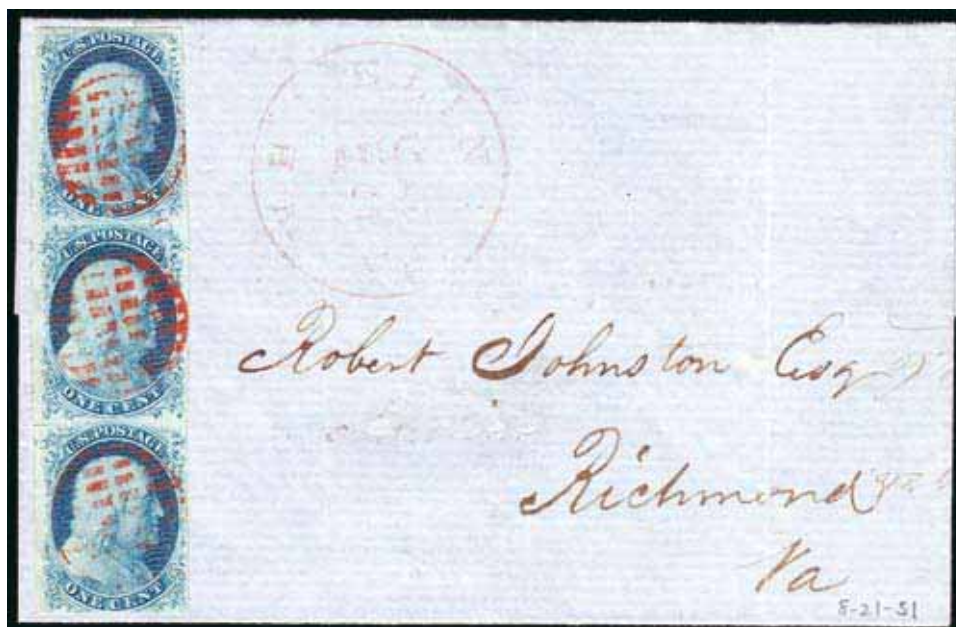 U.S. POSTAGE
ONE CENT
U.S. POSTAGE
ONE CENT
U.S. POSTAGE
ONE CENT
Robert Johnston Esq
Richmond
Va
8-21-51